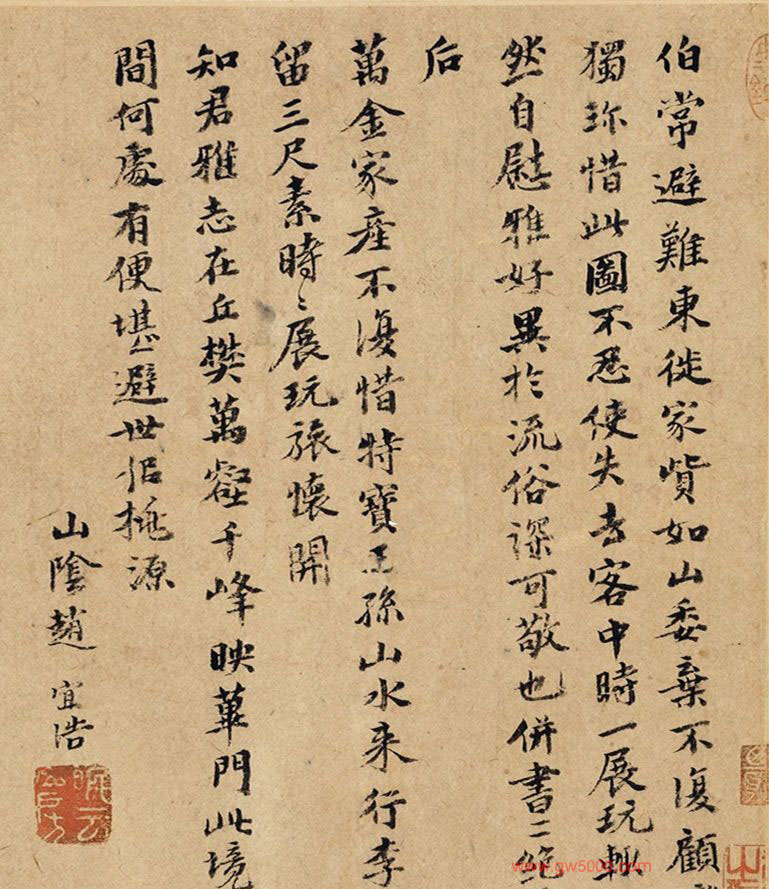 伯常避難東徙家貲如山委棄不復顧
獨珎惜此圖不忍使失去客中時一展玩輒
然自慰雅好異於流俗深可敬也併書二絶
后
萬金家産不復惜特寶王孫山水来行李
留三尺素時〻展玩旅懷開
知君雅志在丘樊萬壑千峰映蓽門此境
間何處有便堪避世侶桃源
山陰趙宜浩
www.gw500.com